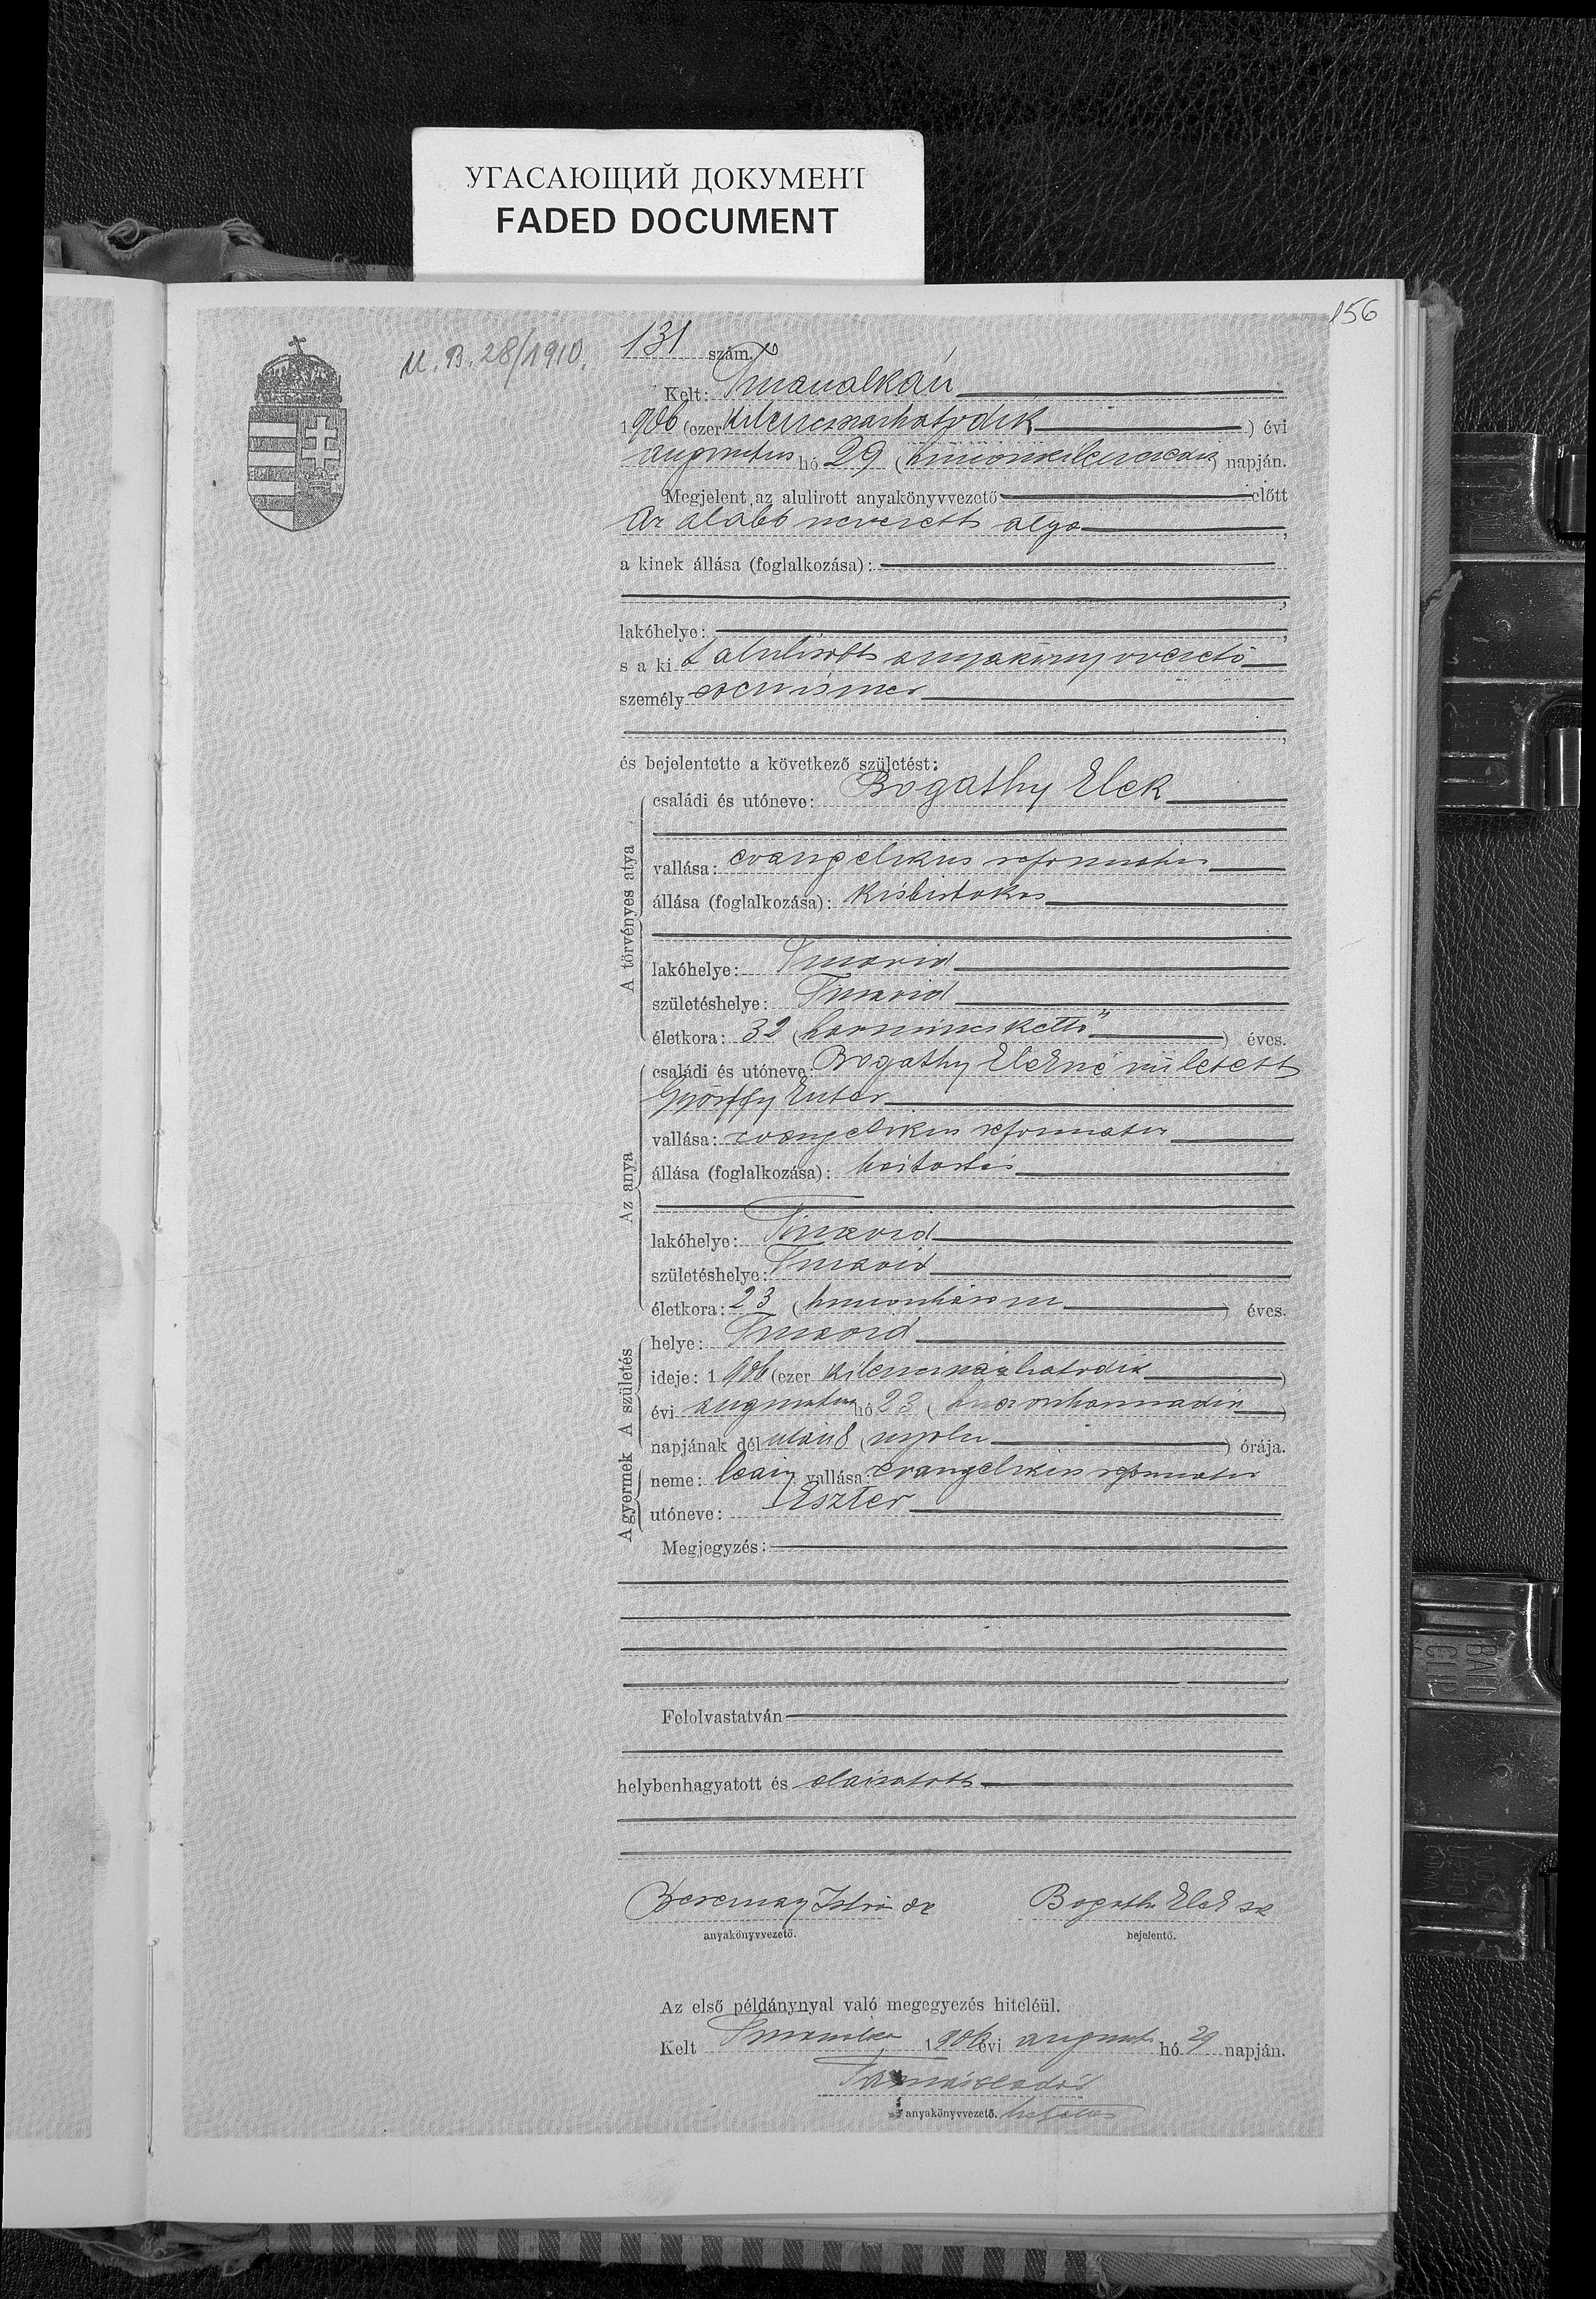 УГАСАЮЩИЙ ДОКУМЕНТ
FADED DOCUMENT
156
M. B. 28/1910.
131 szám.
Kelt: Tiszaalkán
1906 (ezer kilenczszázhatodik) évi
augusztus hó 29 (huszonkilenczedik) napján.
Megjelent az alulirott anyakönyvvezető előtt
Az alább nevezett atya,
a kinek állása (foglalkozása):
lakóhelye:
s a ki t alulirott anyakönyvvezető
személy
és bejelentette a következő születést:
A törvényes atya
családi és utóneve: Bogathy Elek
vallása: evangelikus református
állása (foglalkozása): kisbirtokos
lakóhelye:
születéshelye:
életkora: 32 (harminczkettő) éves.
Az anya
családi és utóneve: Bogathy Elekné született
Györffy Eszter
vallása: evangelikus református
állása (foglalkozása):
lakóhelye:
születéshelye:
életkora: 23 (huszonhárom) éves.
A születés
helye:
ideje: 1906 (ezer kilenczszázhatodik)
évi augusztus hó 23 (huszonharmadik)
napjának dél után 8 (nyolcz) órája.
A gyermek
neme: leány vallása: evangelikus református
utóneve: Eszter
Megjegyzés:
Felolvastatván
helybenhagyatott és aláiratott
István sk
anyakönyvvezető.
Bogathy Elek sk
bejelentő.
Az első példánynyal való megegyezés hiteléül.
Kelt 1906 évi august hó 29 napján.
anyakönyvvezető. helyettes
BALL
CLIP